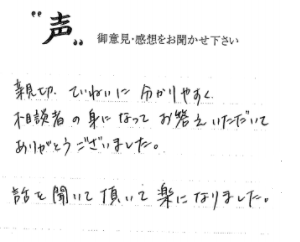 "声" 御意見・感想をお聞かせ下さい
親切、ていねいに 分かりやすく
相談者の身になって お答えいただいて
ありがとうございました。
話を聞いて頂いて 楽になりました。